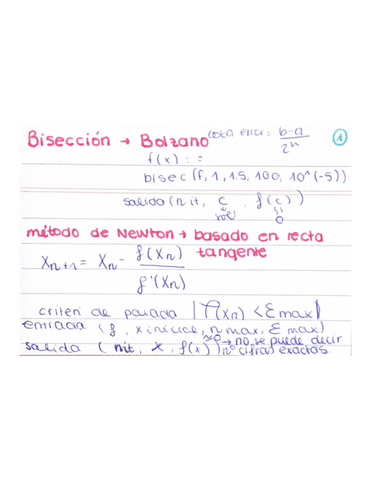 Bisección → Bolzano cota error = b-a / 2^n 1
f(x) : =
bisec(f, 1, 1.5, 100, 10^(-5))
salida (n it, c, f(c))
método de Newton → basado en recta tangente
Xn+1 = Xn - f(Xn) / f'(Xn)
criteri de parada |f(Xn) < Emax|
entrada (f, x inicial, n max, E max)
salida (nit, x, f(x)) ≈0 → no se puede decir nº cifras exactas